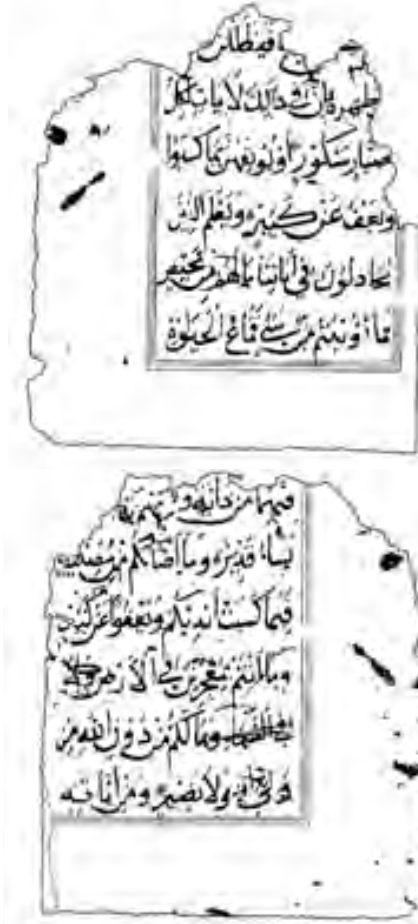 فيظللن
ظهره ان في ذلك لايات لكل
صبار شكور او يوبقهن بما كسبوا
ويعف عن كثير ويعلم الذين
يجادلون في اياتنا ما لهم من محيص
فما اوتيتم من شئ فمتاع الحيوة
فيهما من دابة و
يشاء قدير وما اصابكم من مصيبة
فبما كسبت ايديكم ويعفوا عن كثير
وما انتم بمعجزين في الارض
وما لكم من دون الله من
ولي ولا نصير ومن اياته